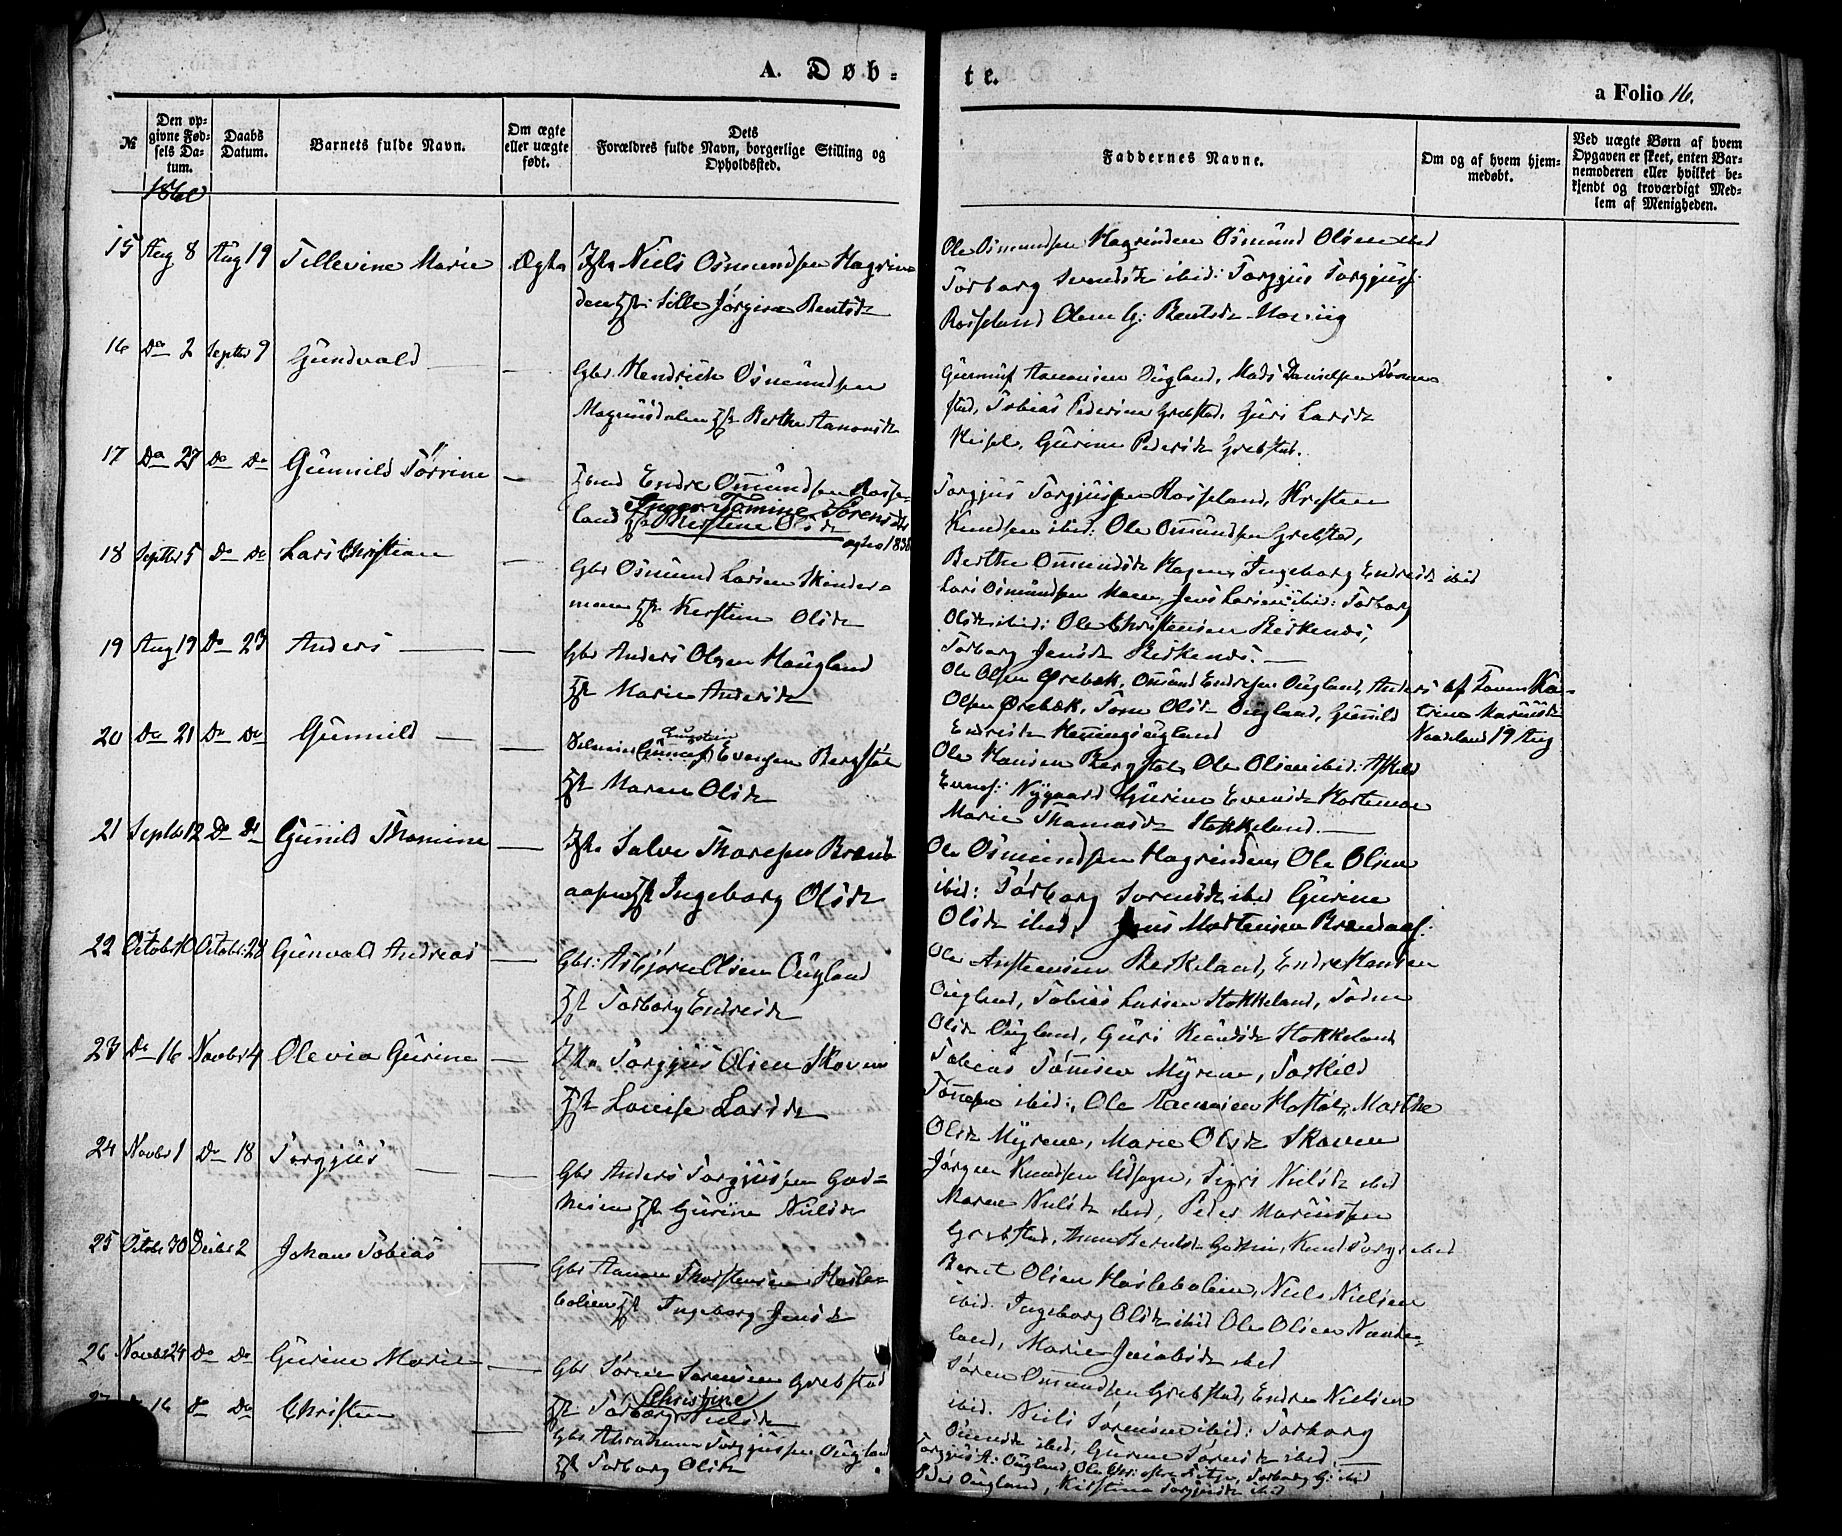 A. Døb-
te.
a Folio 16.
№
Den op-
givne Fød-
sels Da-
tum.
Daabs
Datum.
Barnets fulde Navn.
Om ægte
eller uægte
født.
Dets
Forældres fulde Navn, borgerlige Stilling og
Opholdssted.
Faddernes Navne.
Om og af hvem hjem-
medøbt.
Ved uægte Børn af hvem
Opgaven er skeet, enten Bar-
nemoderen eller hvilket be-
kjendt og troværdigt Med-
lem af Menigheden.
1860
15 Aug 8 Aug 19 Tillevine Marie Ægte
Niels Osmundsen Hagrin-
den Sille Jørgine Bentsdt
Ole Osmundsen Hagrinden Osmund Olsen ibid
Torborg Svendsdt ibid: Torgjus Torgjuss:
Rosseland Olene G: Bentsdt
16 Do 2 Septbr 9 Gundvald —
Gbr Hendrich Osmundsen
Magnusdalen Berthe Aanonsdt
Gunnuf Aanonsen Øugland, Mads Danielsen
stad, Tobias Pedersen Grebstad, Guri Larsdt
Gurine Pedersdt Grebstad.
17 Do 27 Do Do Gunnild Tørrine —
Endre Omundsen Rosse-
land Inger Tomine Sørensdtr
Kirstine Olsdt
1838
Torgjus Torgjussen Rosseland, Kristen
Knudsen ibid: Ole Omundsen Grebstad,
Berthe Omundsdt Hagen, Ingeborg Endresdt ibid
18 Septbr 5 Do Do Lars Christian —
Gbr Osmund Larsen Skinder-
moen Kirsten Olsdt
Lars Osmundsen Moen, Jens Larsen ibid: Torborg
Olsdt ibid: Ole Christensen Birkenes,
Torborg Jensdt Birkenes. —
19 Aug 19 Do 23 Anders —
Gbr Anders Olsen Haugland
Marie Andersdt
Ole Olsen Ørebæk, Omund Endresen Øugland, Anders
Olsen Ørebæk, Tone Olsdt Øugland, Gunnild
Endresdt
af Karen Ka-
trine Mariusdt
Naadeland 19 Aug
20 Do 21 Do Do Gunnild —
Evensen Bergstøl
Maren Olsdt
Ole Hansen Bergstøl, Ole Olsen ibid: Askild
Evens: Nygaard Gurine Evensdt
Marie Thomasdt Stokkeland. —
21 Septbr 12 Do Do Gunild Thomine —
Salve Thoresen Brænd-
aasen Ingeborg Olsdt
Ole Osmundsen Hagrinden, Ole Olsen
ibid: Torborg Sørensdt ibid Gurine
Olsdt ibid, Jens Mortensen Brændaas:
22 Octobr 10 Octobr 28 Gunvald Andreas —
Gbr: Asbjørn Olsen Øugland
Torborg Endresdt
Ole Anstensen Birkeland, Endre Hansen
Øugland, Tobias Larsen Stokkeland, Tone
Olsdt Øugland, Guri Knudsdt Stokkeland
23 Do 16 Novbr 4 Olevia Gurine —
Torgjus Olsen Skoven
Lovise Larsdt
Tobias Tønnesen Myrene, Torkild
Tønnesen ibid:, Ole Hostøl, Marthe
Olsdt Myrene, Marie Olsdt Skoven
24 Novbr 1 Do 18 Torgjus —
Gbr Anders Torgjussen God-
Gurine Nielsdt
Jørgen Knudsen Udsogn, Sigri Nielsdt ibid
Maren Nielsdt ibid, Peder Mariussen
Grebstad,
25 Octobr 30 Decbr 2 Johan Tobias —
Gbr Aanon Thorstensen Hasle-
bolien Ingeborg Jensdt
Bernt Olsen Haslebolien, Niels Nielsen
ibid. Ingeborg Olsdt ibid Ole Olsen Naade-
land, Marie Jacobsdt ibid
26 Novbr 24 Do Do Gurine Marie —
Gbr Søren Sørensen Grebstad
Christine
Torborg Nielsdt
Søren Omundsen Grebstad, Endre Nielsen
ibid. Niels Sørensen ibid: Torborg
Omundsdt ibid, Gurine Sørensdt ibid —
27 16 Do Do Christen —
Gbr Abraham Torgjussen Øugland
Torborg Olsdt
Torgjus A: Øugland, Ole Torborg G: ibid
Peder Øugland, Kirstine Torgjusdt ibid